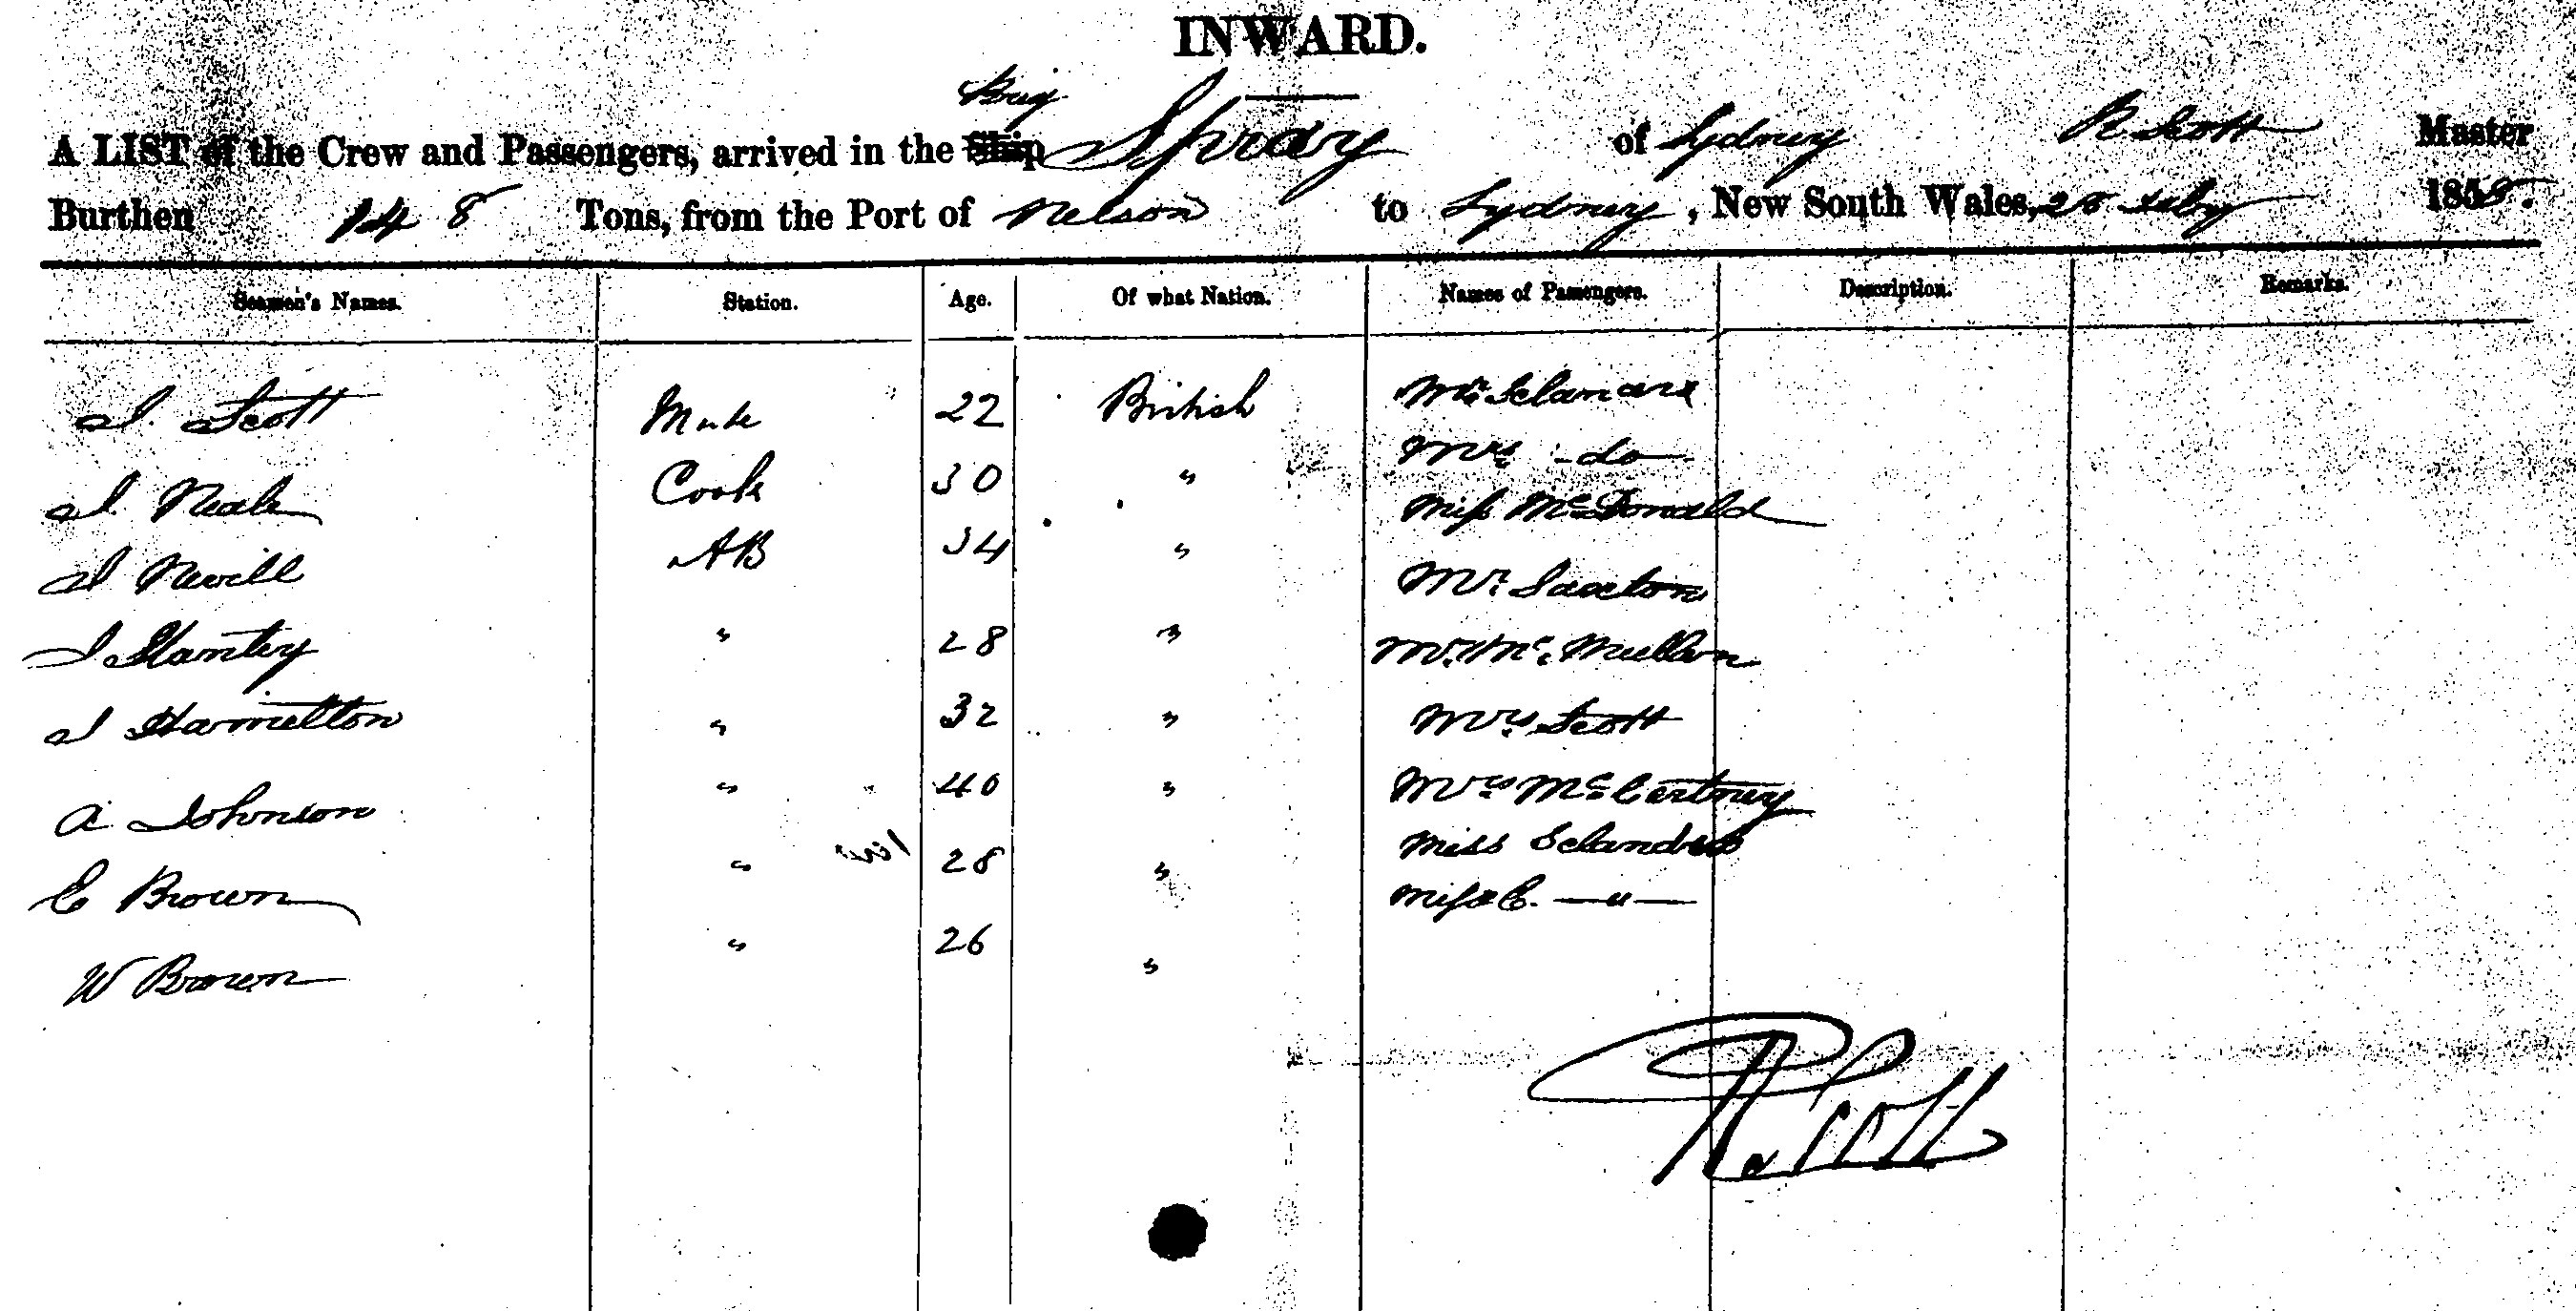 INWARD.
Brig
A LIST of the Crew and Passengers, arrived in the Ship Spray of Sydney R Scott Master
Burthen 148 Tons, from the Port of Nelson to Sydney, New South Wales, 25 Feby 1858.
Seamen's Names. Station. Age. Of what Nation. Names of Passengers. Description. Remarks.
J. Scott Mate 22 British Mr.
Mrs. - do -
J. Neale Cook 30 " Miss McDonald
J Nevill AB 34 " Mr. Saxton
J Stantey " 28 " Mr. Mc. Mullen
J Hamilton " 32 " Mrs. Scott
A. Johnson " 40 " Mrs McCertney
E Brown " 28 " Miss
Miss C. — " —
W Brown " 26 "
R Scott